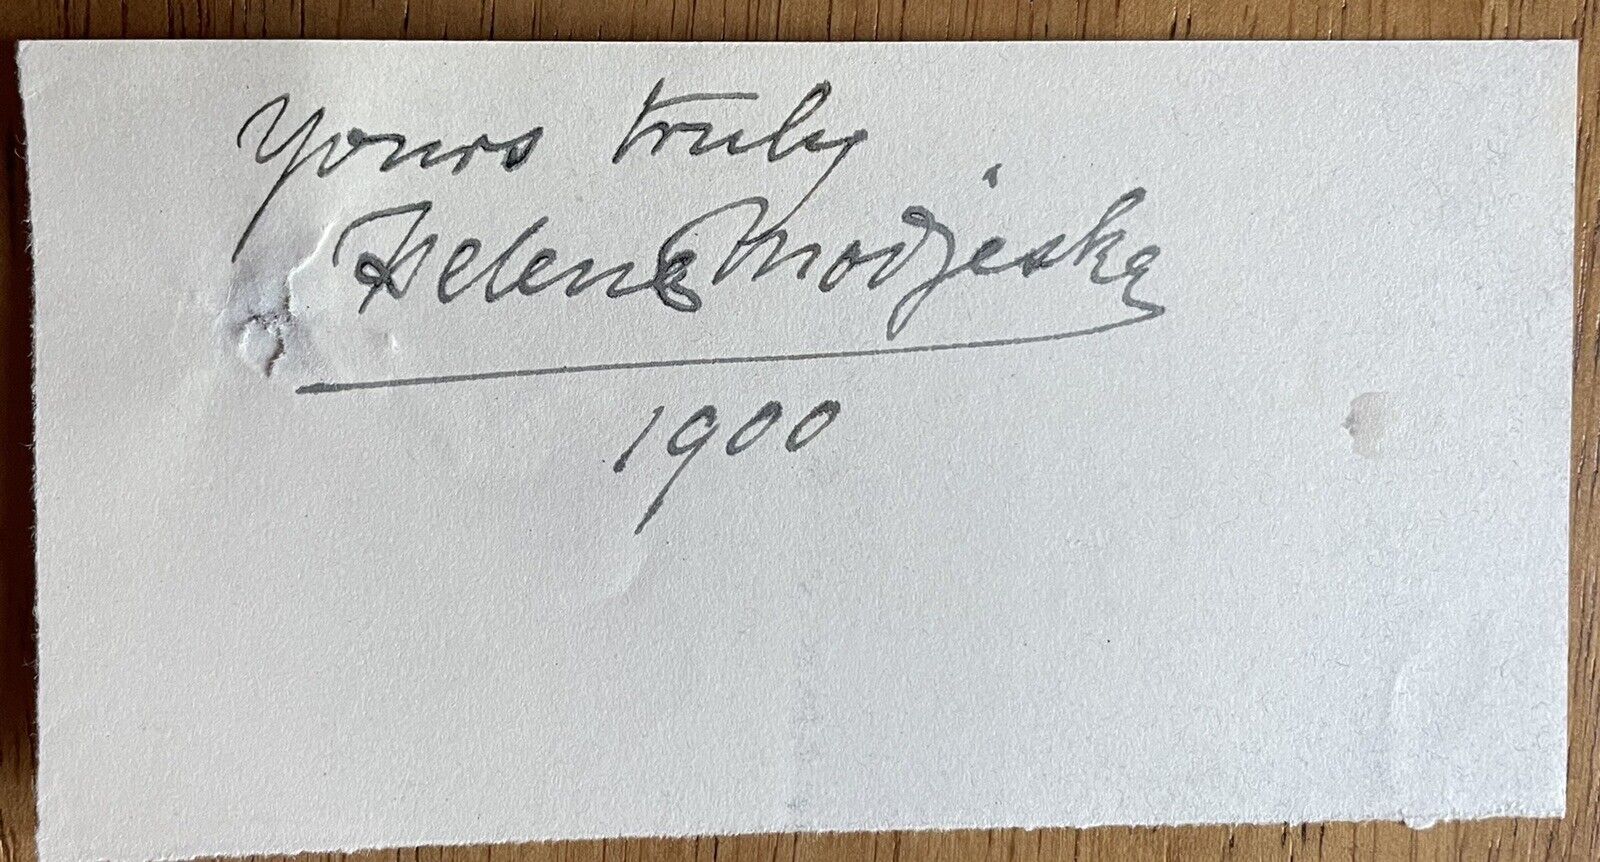 Yours truly
Helena Modjeska
1900